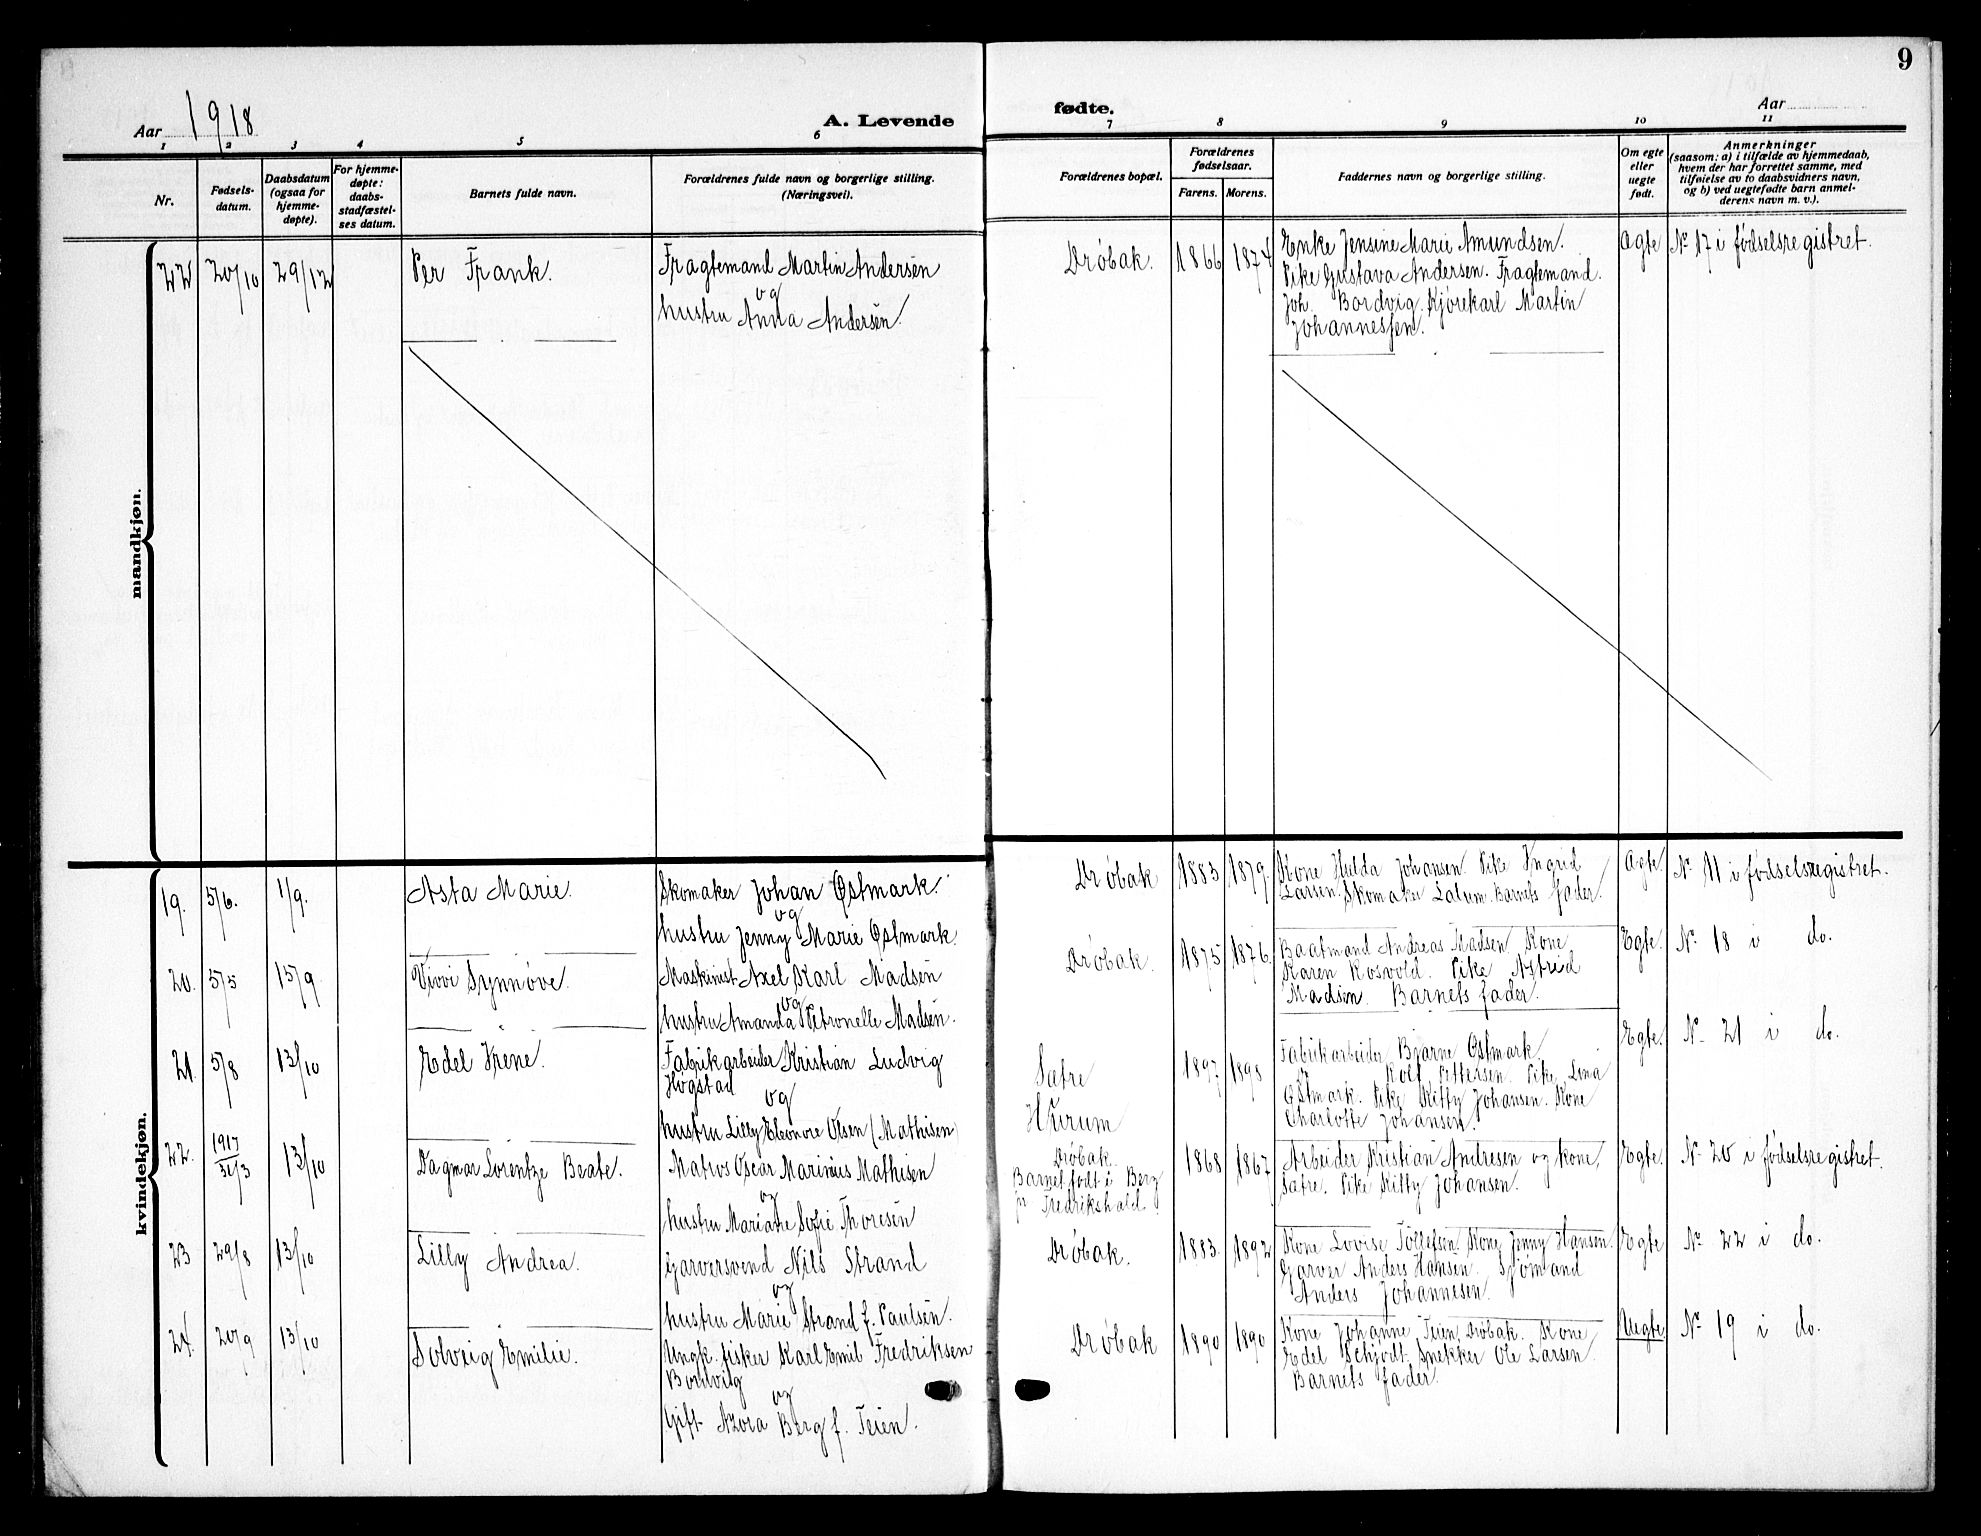 9
Aar 1918
A. Levende
fødte.
Aar
1 2 3 4 5 6 7 8 9 10 11
Nr.
Fødsels-
datum.
Daabsdatum
(ogsaa for
hjemme-
døpte).
For hjemme-
døpte:
daabs-
stadfæstel-
ses datum.
Barnets fulde navn.
Forældrenes fulde navn og borgerlige stilling.
(Næringsvei).
Forældrenes bopæl.
Forældrenes
fødselsaar.
Farens. Morens.
Faddernes navn og borgerlige stilling.
Om egte
eller
uegte
født.
Anmerkninger
(saasom: a) i tilfælde av hjemmedaab,
hvem der har forrettet samme, med
tilføielse av to daabsvidners navn,
og b) ved uegtefødte barn anmel-
derens navn m. v.).
mandkjøn.
22 20/10 29/12 Per Frank.
Fragtemand Martin Andersen
og
hustru Anna Andersen.
Drøbak. 1866 1874
Enke Jensine Marie Amundsen.
Pike Gustava Andersen. Fragtemand.
Joh. Bordvig. Kjørekarl Martin
Johannessen.
Ægte No 17 i fødselsregistret.
kvindekjøn.
19. 5/6. 1/9. Asta Marie.
Skomaker Johan Østmark.
og
hustru Jenny Marie Østmark.
Drøbak 1883 1879.
Kone Hulda Johansen. Pike Ingrid
Larsen. Skomaker Barnets fader.
Ægte. No 11 i fødselsregistret.
20. 5/5 15/9. Vivvi Synnøve.
Maskinist Axel Karl Madsen
og
hustru Amanda Petronelle Madsen.
Drøbak. 1875 1876.
Baatmand Andreas Madsen. Kone
Karen Kosvold. Pike Astrid
Madsen. Barnets fader.
Egte. No 18 i do.
21. 5/8 13/10 Edel Irene.
Fabrikarbeider Kristian Ludvig
Høgstad
og
hustru Lilly Eleonore Olsen (Mathisen)
Sætre
Hurum
1897 1898
Fabrikarbeider Bjarne Østmark.
Rolf Pettersen. Pike Lina
Østmark. Pike Kitty Johansen. Kone
Charlotte Johansen.
Egte. No 21 i do.
22. 1917 31/3 13/10 Dagmar Lorentze Beate.
Matros Oscar Marinius Mathisen
og
hustru Mariane Sofie Thoresen
Drøbak.
Barnet født i Berg
pr Fredrikshald.
1868 1867
Arbeider Kristian Andresen og kone,
Sætre. Pike Kitty Johansen.
Egte. No 20 i fødselsregistret.
23 29/8 13/10 Lilly Andrea.
Garversvend Nils Strand
og
hustru Marie Strand f. Paulsen.
Drøbak. 1883. 1892
Kone Lovise Tollefsen. Kone Jenny Hansen.
Garver Anders Hansen. Sjømand
Anders Johannesen.
Egte No 22 i do.
24. 20/9 13/10 Solveig Emilie.
Ungk. fisker Karl Emil Fredriksen
Bordvig
og
Gift Azora Berg f. Teien.
Drøbak 1890 1890
Kone Johanne Teien, Drøbak. Kone
Edel Schjødt. Snekker Ole Larsen.
Barnets fader.
Uegte. No 19 i do.